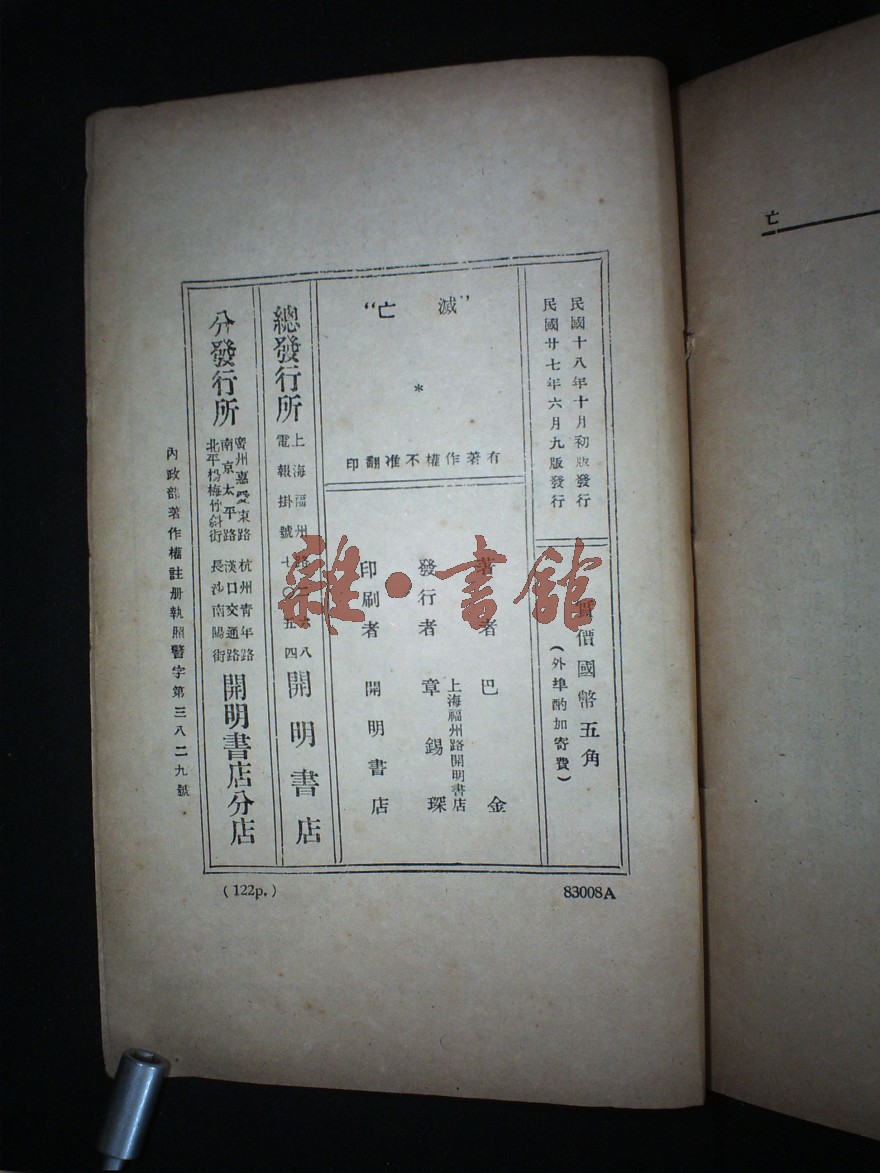 亡
民國十八年十月初版發行
民國廿七年六月九版發行
實價國幣五角
(外埠酌加寄費)
"滅亡"
*
有著作權不准翻印
著者 巴金
發行者 章錫琛
上海福州路開明書店
印刷者 開明書店
總發行所
上海福州路二六八
電報掛號七〇五四
開明書店
分發行所
廣州嘉愛東路 杭州青年路
南京太平路 漢口交通路
北平楊梅竹斜街 長沙南陽街
開明書店分店
內政部著作權註册執照警字第三八二九號
(122p.)
83008A
雜·書館